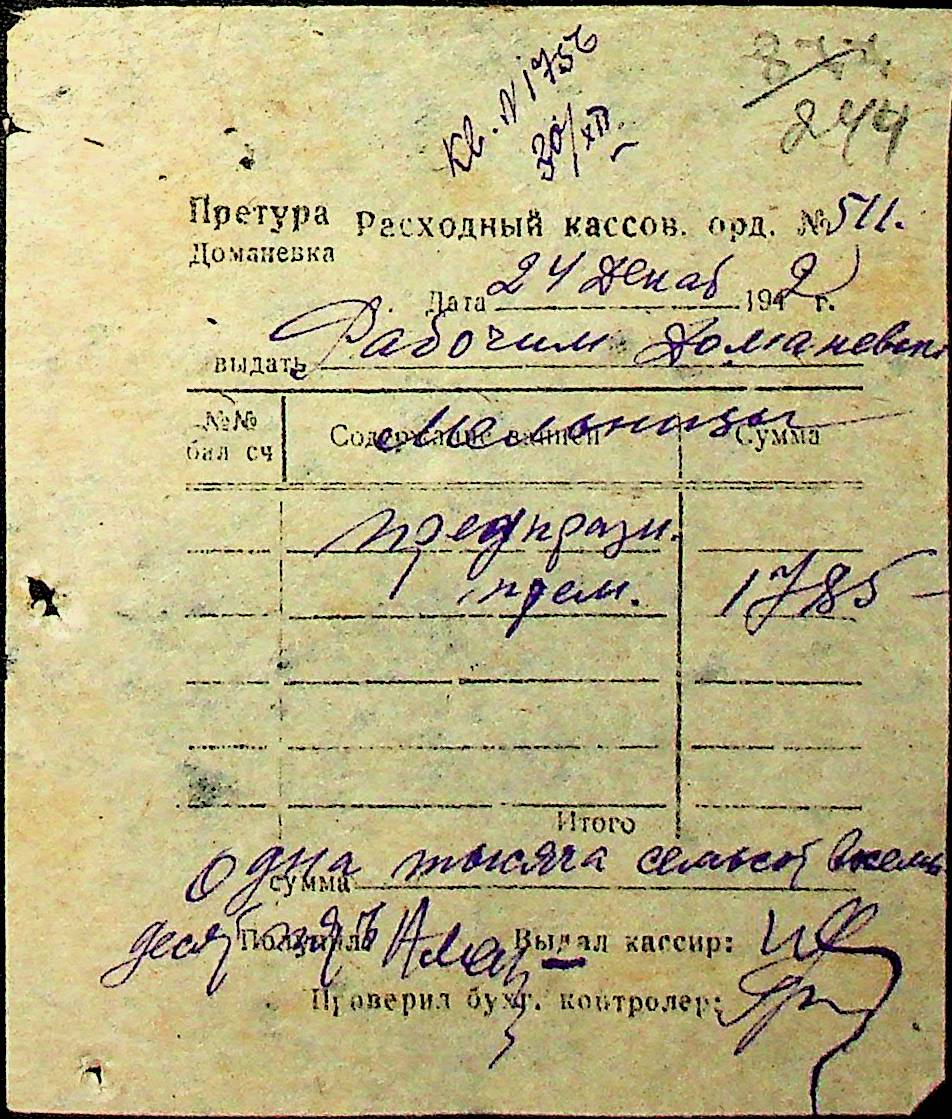 Кв. N 1756
30/XII.
244
Претура Расходный кассов. орд. № 511.
Доманевка
Дата 24 Декаб 1942 г.
выдать Рабочим Доманевск
Мельницы
№№ Содержание записи Сумма
бал сч
предпразн.
прем. 1785 -
Итого
сумма Одна тысяча семьсот восемь
десят пять
Получил Выдал кассир:
Проверил бухг. контролер: